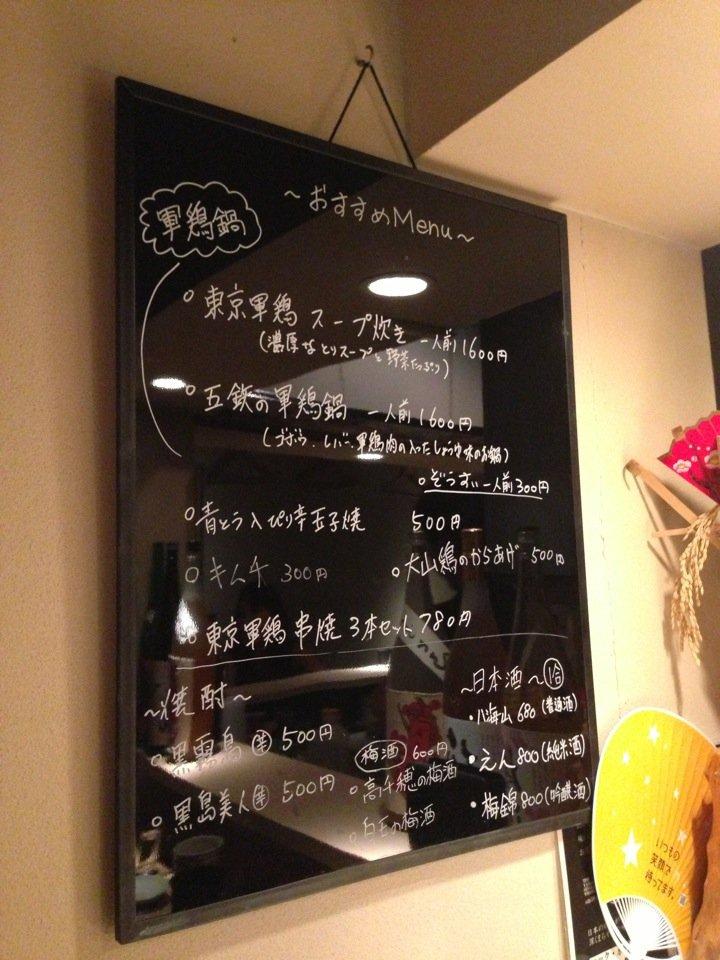 ～おすすめMenu～
軍鶏鍋
○東京軍鶏 スープ炊き 一人前1600円
(濃厚なとりスープと野菜たっぷり)
○五鉄の軍鶏鍋 一人前1600円
(ゴボウ、レバー、軍鶏肉の入ったしょうゆ味のお鍋)
○ぞうすい一人前300円
○青とう入ぴり辛玉子焼 500円
○キムチ 300円
○大山鶏のからあげ 500円
○東京軍鶏 串焼 3本セット780円
～焼酎～
○黒霧島 芋 500円
○黒島美人 芋 500円
梅酒 600円
・高千穂の梅酒
・白玉の梅酒
～日本酒～ 1合
・八海山 680 (普通酒)
・えん800(純米酒)
・梅錦800(吟醸酒)
いつもの
笑顔で
待ってます。